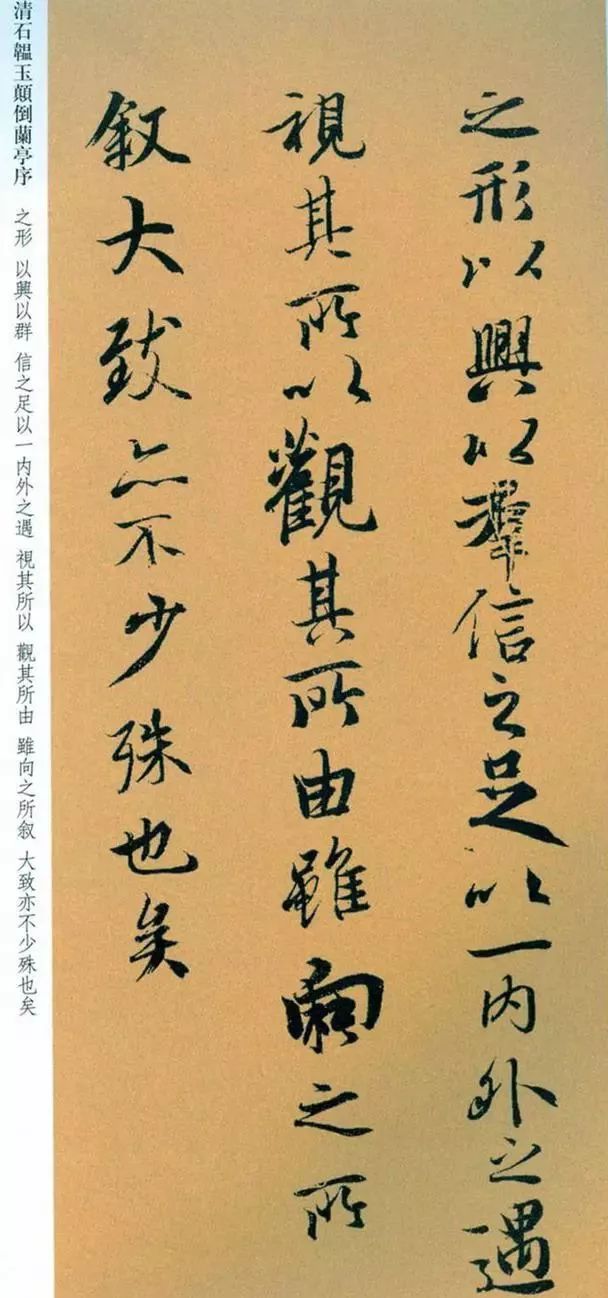 之形以興以群信之足以一内外之遇
視其所以觀其所由雖向之所
叙大致亦不少殊也矣
清石韞玉顛倒蘭亭序 之形 以興以群 信之足以一内外之遇 視其所以 觀其所由 雖向之所叙 大致亦不少殊也矣